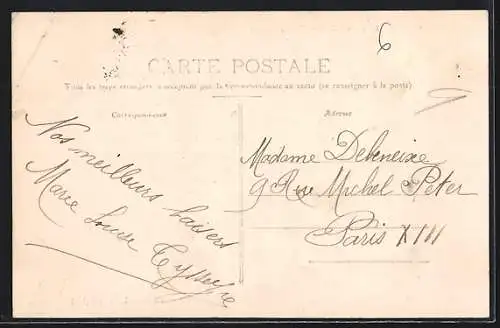 6
CARTE POSTALE
Tous les pays étrangers n'acceptent pas la correspondance au recto (se renseigner à la poste)
Correspondance
Adresse
Nos meilleurs baisers
Marie Louise
Madame
9 Rue Michel Peter
Paris XIII